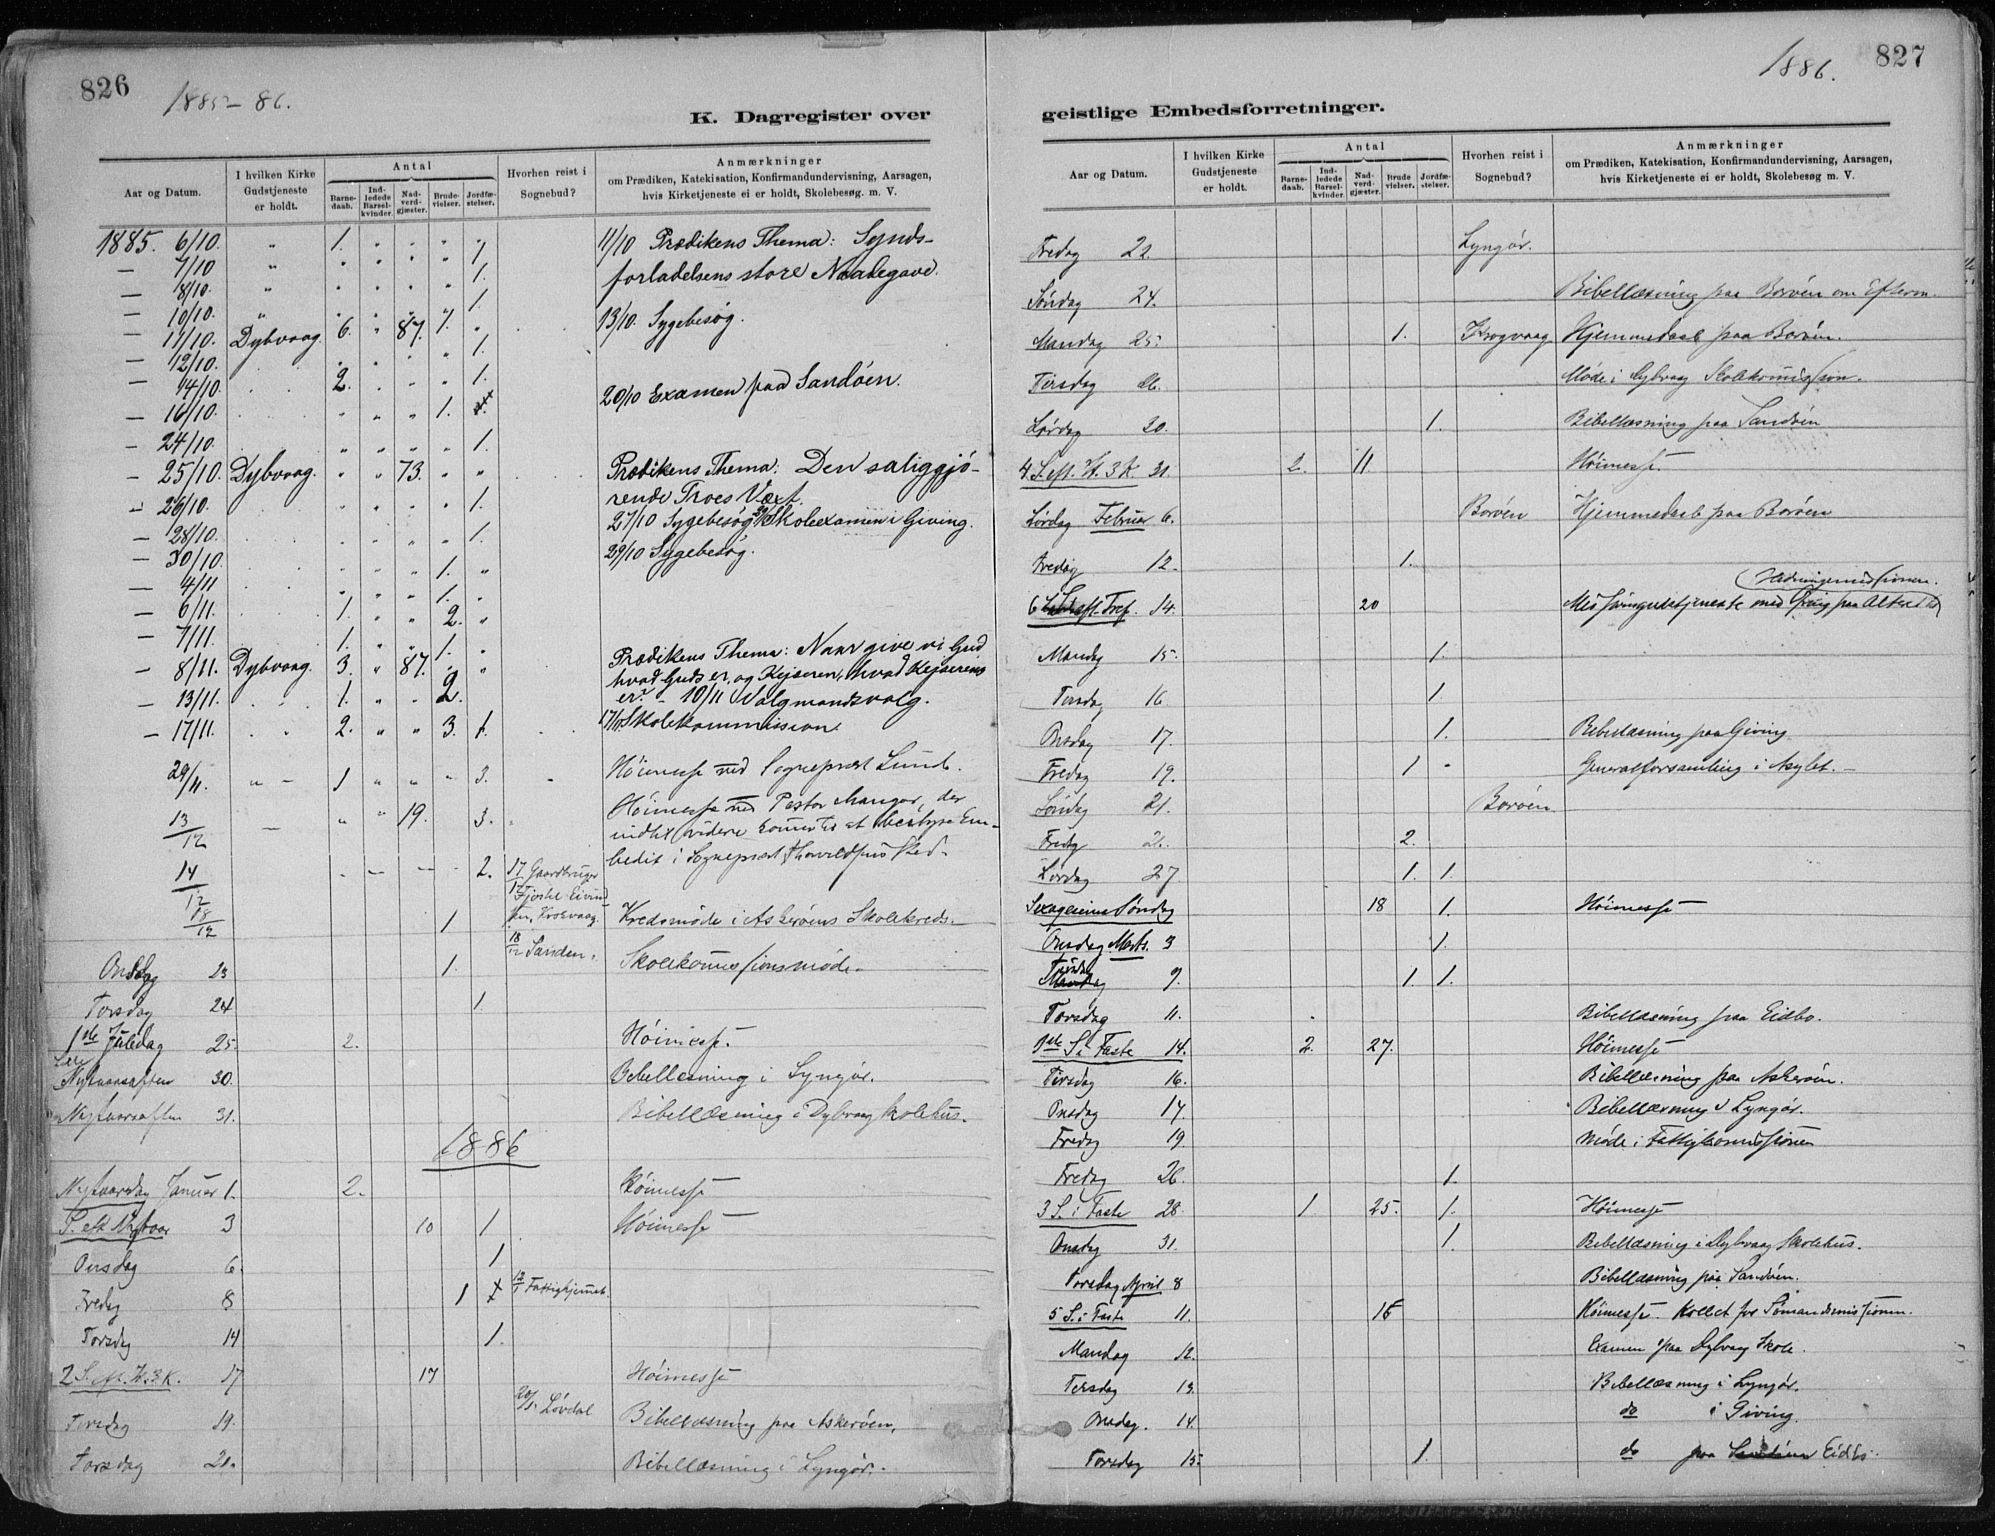 826
1885-86.
K. Dagregister over
Aar og Datum.
I hvilken Kirke Gudstjeneste er holdt.
Antal
Barnedaab.
Indledede Barselkvinder.
Nadverdgjæster.
Brudevielser.
Jordfæstelser.
Hvorhen reist i Sognebud?
Anmærkninger
om Prædiken, Katekisation, Konfirmandundervisning, Aarsagen,
hvis Kirketjeneste ei er holdt, Skolebesøg. m. V.
1885. 6/10. " 1. " " " " 11/10 Prædikens Thema: Synds-
— 7/10 " " " " " 1. forladelsens store Naadegave.
— 8/10. " " " " " 1.
— 10/10. " " " " " 1. 13/10. Sygebesøg.
— 11/10. Dybvaag. 6. " 87. 1. "
— 12/10. " " " " 1.
— 14/10. 2. " " " 1. 20/10 Examen paa Sandøen.
— 16/10. " " " 1.
— 24/10. " " " " 1.
— 25/10. Dybvaag. " " 73. " " Prædikens Thema: Den saliggjø-
— 26/10. " " " " 1. rende Troes Væxt.
— 28/10. " " " " 1. 27/10 Sygebesøg Skoleexamen i Giving.
— 30/10. " " " 1. " 29/10 Sygebesøg.
— 4/11 " " " 1. "
— 6/11. 1. " " 2. "
— 7/11. 1. " " 1. " Prædikens Thema: Naar give vi Gud
— 8/11. Dybvaag. 3. " 87. " " hvad Guds er, og Kejseren, hvad Kejserens
— 13/11. 1. " " 2. er? - 10/11 Valgmandsvalg.
— 17/11. 2. " " 3. 1. 17/11 Skolekommission.
29/11. " — 1 " " " 3. Høimesse ved Sognepræst Lund.
13/12 — " " 19. 3. Høimesse ved Pastor Mangor, der
indtil videre kommer til at bestyre Em-
14/12 2. 17/12 Gaardbruger bedet i Sognepræst Sted.
18/12 1 Krokvaag. Kredsmøde i Askerøens Skolekreds.
18/12 Sanden.
Onsdag 23 1. Skolekommissionsmøde.
Torsdag 24 1.
1ste Juledag 25. 2. Høimesse.
Lille Nytaarsaften 30. Bibellæsning i Lyngør.
Nytaarsaften 31. Bibellæsning i Dybvaag Skolehus.
1886
Nytaarsdag Januar 1. 2. Høimesse
S. eft. Nytaar 3 10 1 Høimesse
Onsdag 6. 1
Fredag 8 1 12/1 Fattighjemmet.
Torsdag 14 1.
2 S. eft. H. 3 K. 17 17 Høimesse
Tirsdag 19. 20/1 Løvdal Bibellæsning paa Askerøen.
Torsdag 21. Bibellæsning i Lyngør.
1886.
827
geistlige Embedsforretninger.
Aar og Datum.
I hvilken Kirke Gudstjeneste er holdt.
Antal
Barnedaab.
Indledede Barselkvinder.
Nadverdgjæster.
Brudevielser.
Jordfæstelser.
Hvorhen reist i Sognebud?
Anmærkninger
om Prædiken, Katekisation, Konfirmandundervisning, Aarsagen,
hvis Kirketjeneste ei er holdt, Skolebesøg m. V.
Fredag 22. Lyngør.
Søndag 24. Bibellæsning paa Borøen om Efterm.
Mandag 25. 1. Krogvaag Hjemmedaab paa Borøen.
Tirsdag 26. Møde i Dybvaag Skolekommission.
Lørdag 30. 1. Bibellæsning paa Sandøen
4 S. eft. H. 3 K 31. 2. 11. Høimesse.
Lørdag Februar 6. Borøen Hjemmedaab paa Borøen
Fredag 12. 1.
Hedningemissionen.
14. 20 Missionsgudstjeneste med paa Alteret
Mandag 15. 1.
Tirsdag 16 1.
Onsdag 17. 1. Bibellæsning paa Giving
Fredag 19. 1 - Generalforsamling i Asylet. —
Søndag 21. Borøen.
Fredag 26. 2.
Lørdag 27. 1. 1.
Sexagesima Søndag 18 1. Høimesse
Onsdag Marts. 3 1.
Tirsdag 9. 1. 1.
Torsdag 11. Bibellæsning paa Eidbo.
1ste S. i Faste 14. 2. 27. Høimesse
Tirsdag 16. Bibellæsning paa Askerøen.
Onsdag 17. Bibellæsning i Lyngør.
Fredag 19 Møde i Fattigkommissionen
Fredag 26. 1.
3 S. i Faste 28. 1. 25. 1. Høimesse
Onsdag 31. 1. Bibellæsning i Dybvaag Skolehus.
Torsdag April 8 Bibellæsning paa Sandøen.
5 S. i Faste 11. 15 Høimesse. Kollect for Sømandsmissionen.
Mandag 12. Examen paa Dybvaag Skole.
Tirsdag 13. Bibellæsning i Lyngør.
Onsdag. 14. do i Giving.
Torsdag 15. 1. do paa Eidbo.